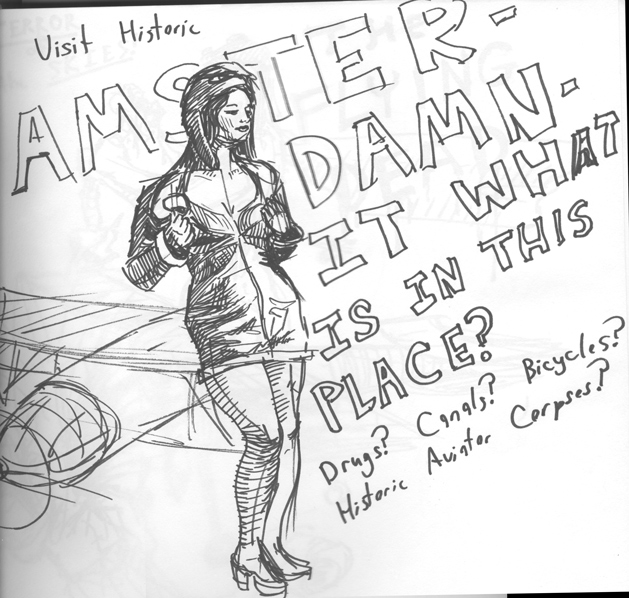 Visit Historic
AMSTER-
DAMN-
IT WHAT
IS IN THIS
PLACE?
Drugs? Canals? Bicycles?
Historic Aviator Corpses?